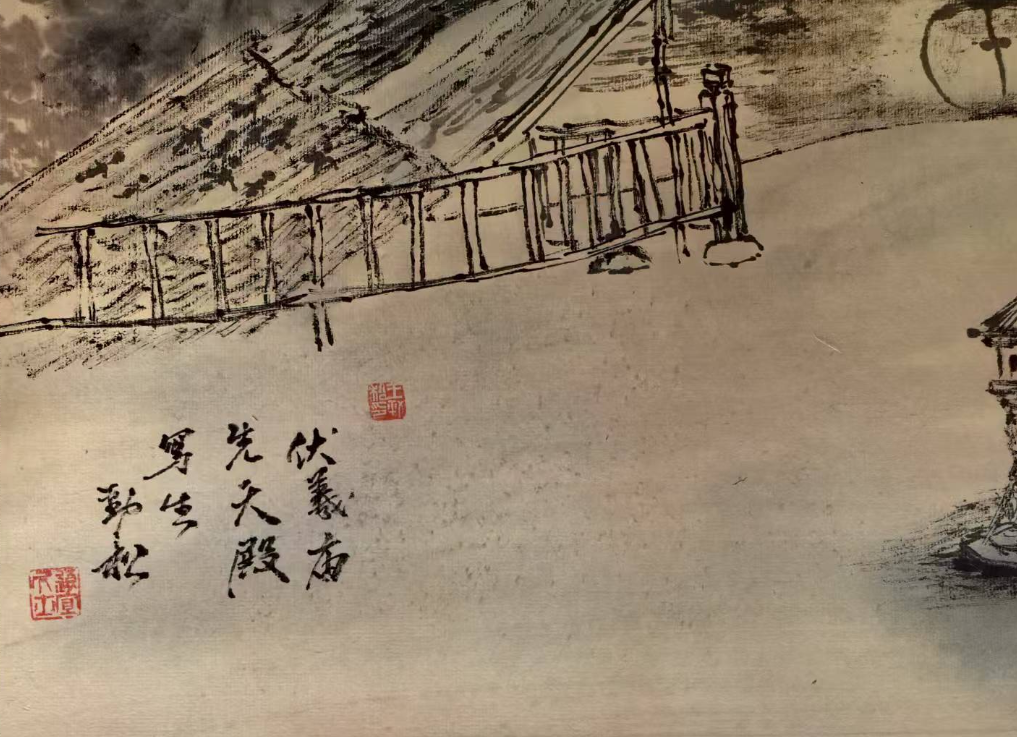 伏羲庙
先天殿
寫生
勁松